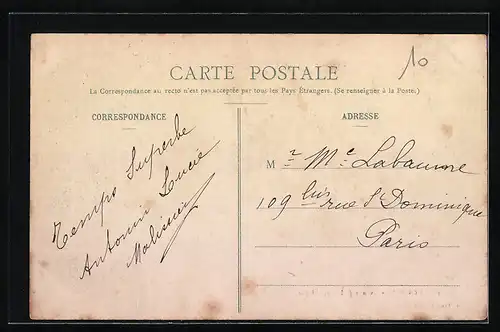 10
CARTE POSTALE
La Correspondance au recto n'est pas acceptée par tous les Pays Étrangers. (Se renseigner à la Poste.)
CORRESPONDANCE
ADRESSE
Temps Superbe
Antonin Lucie
M r Me Labaume
109 bis rue St Dominique
Paris